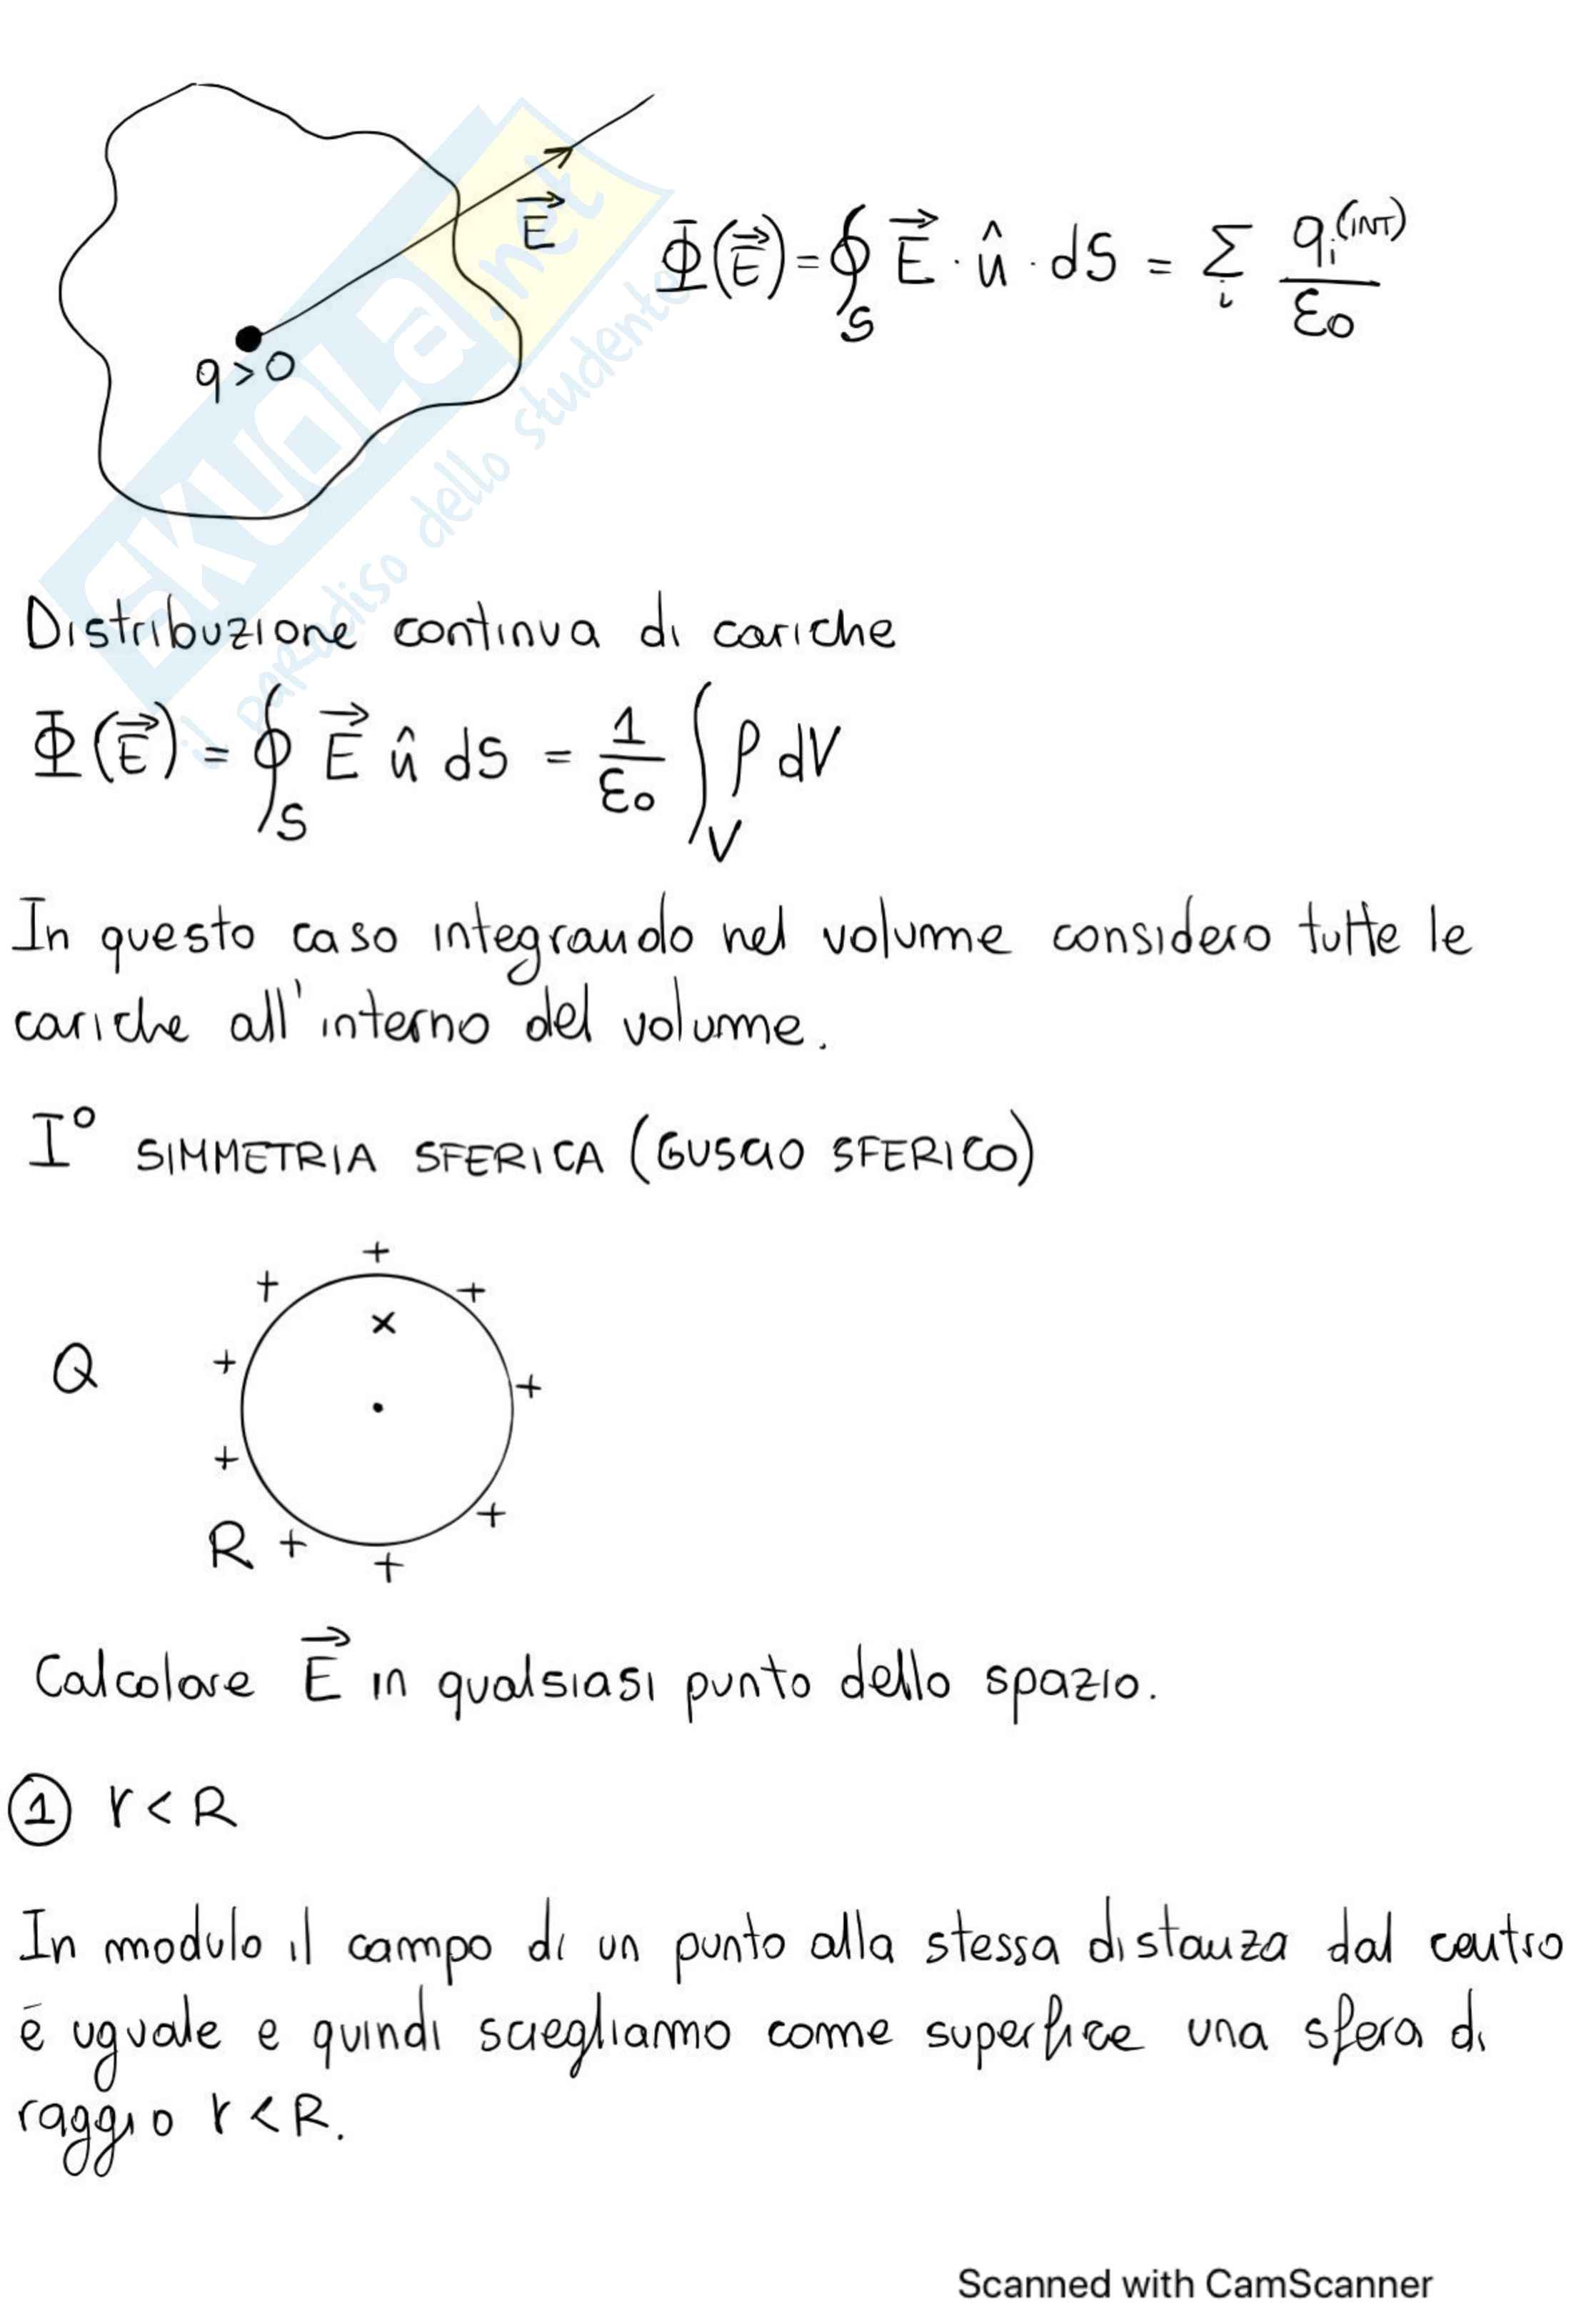 E⃗
q>0
Φ(E⃗) = ∮_S E⃗ · û · dS = Σ_i q_i^(INT) / ε0
SKUOLA.net
il paradiso dello studente
Distribuzione continua di cariche
Φ(E⃗) = ∮_S E⃗ û dS = 1/ε0 ∫_V ρ dV
In questo caso integrando nel volume considero tutte le
cariche all'interno del volume.
I° SIMMETRIA SFERICA (GUSCIO SFERICO)
+ + + + + + + + +
x
Q
R
Calcolare E⃗ in qualsiasi punto dello spazio.
① r<R
In modulo il campo di un punto alla stessa distanza dal centro
è uguale e quindi sciegliamo come superfice una sfera di
raggio r<R.
Scanned with CamScanner